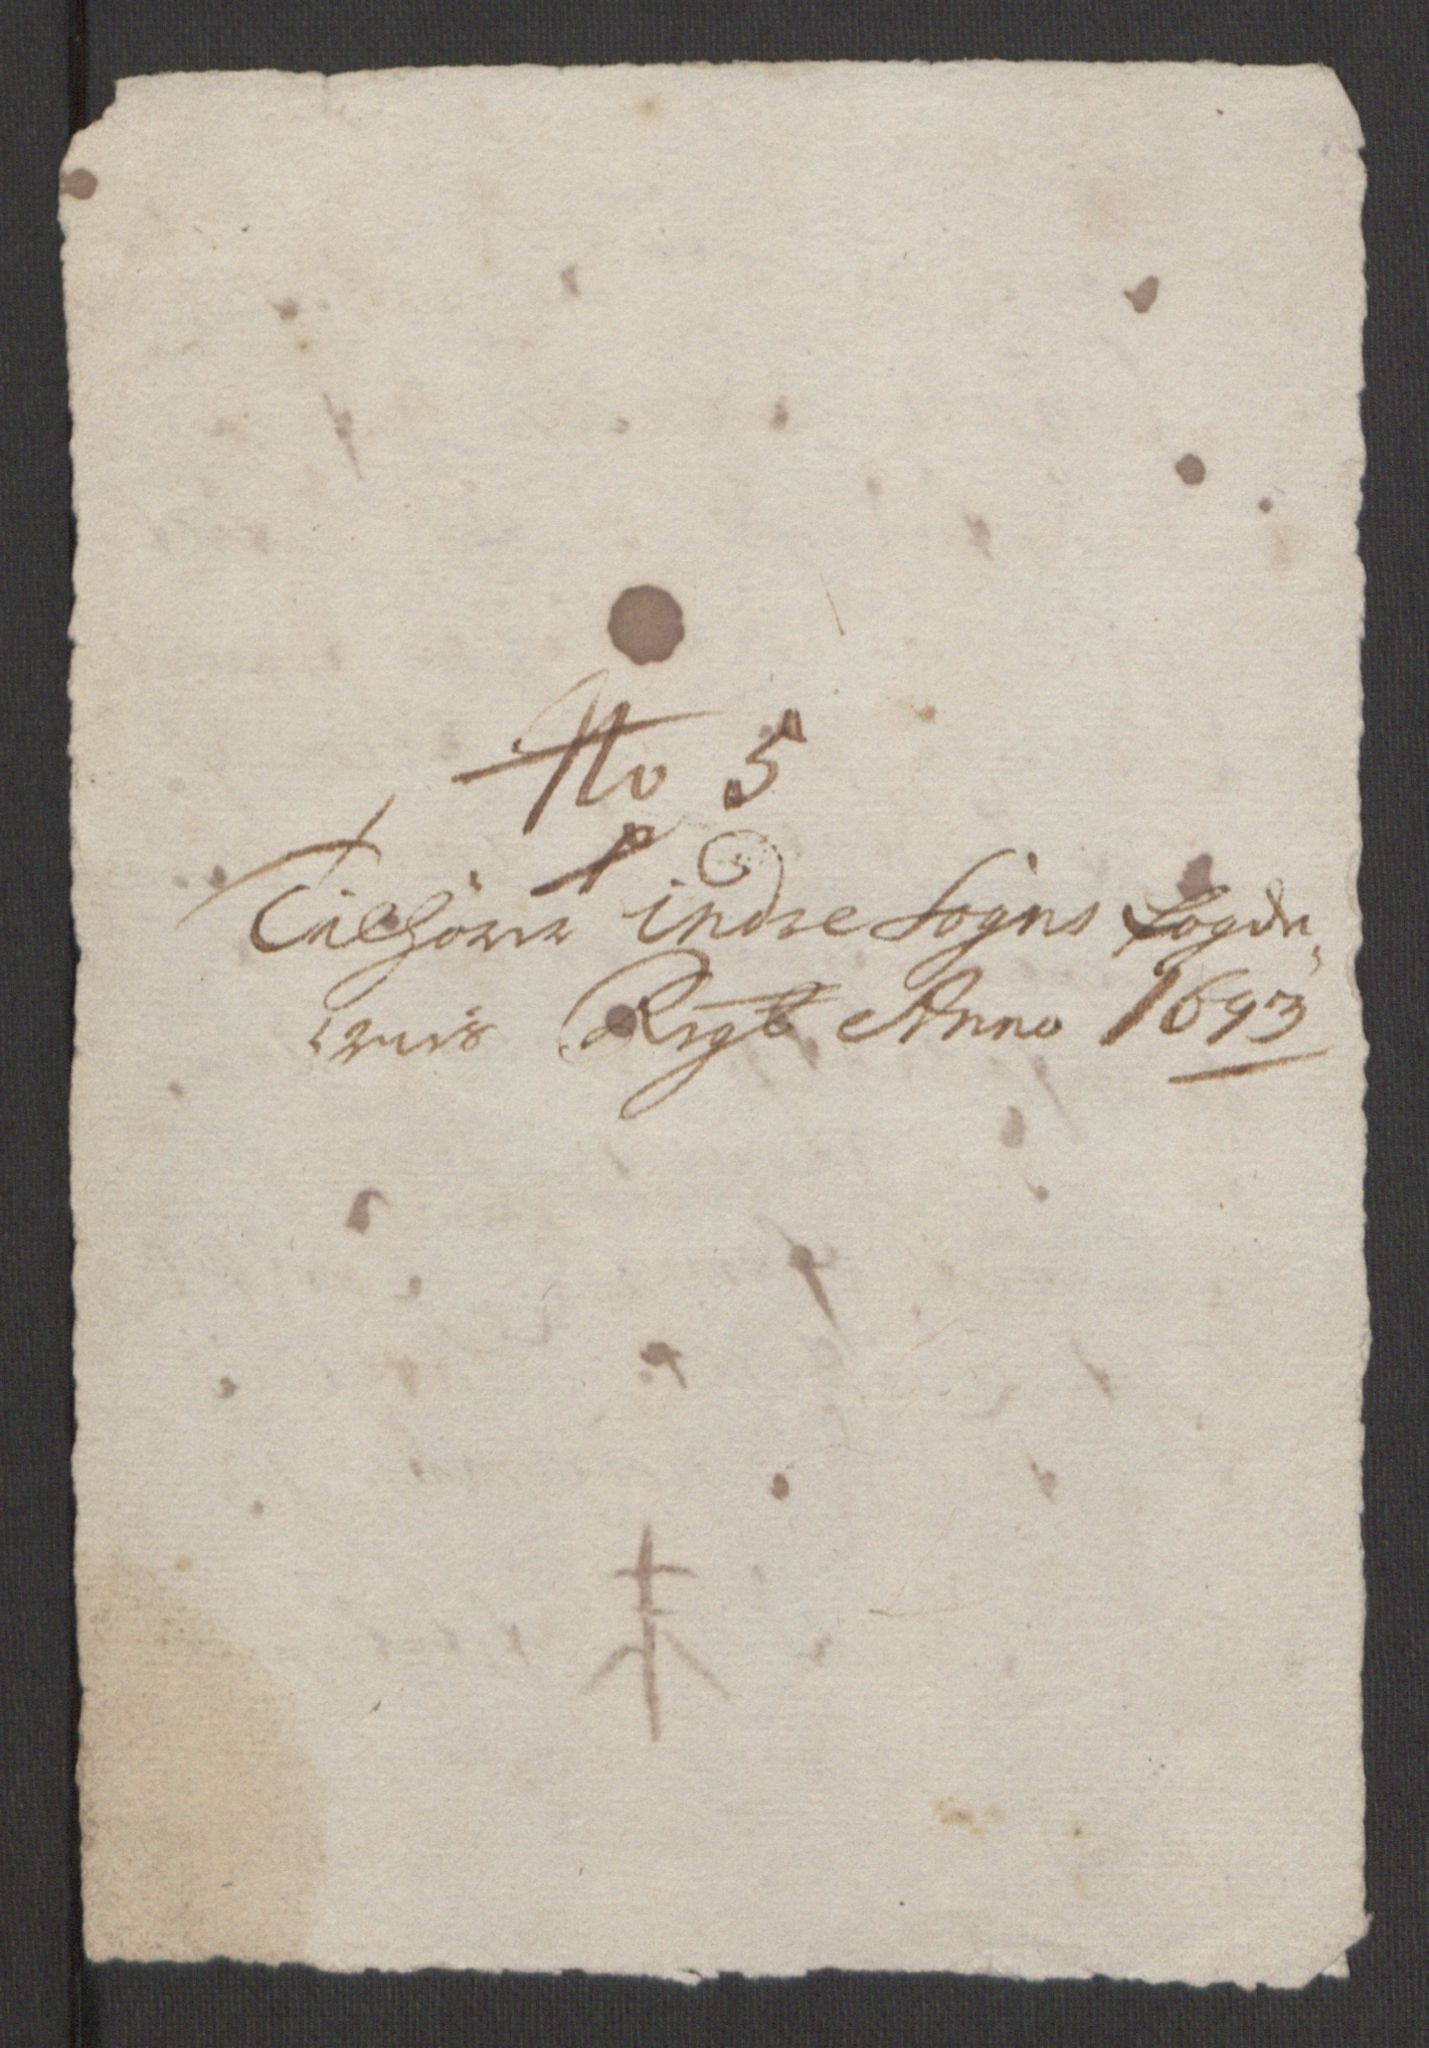 No 5
Tilhörer indre Sogns fogde,
riis Regt Anno 1693